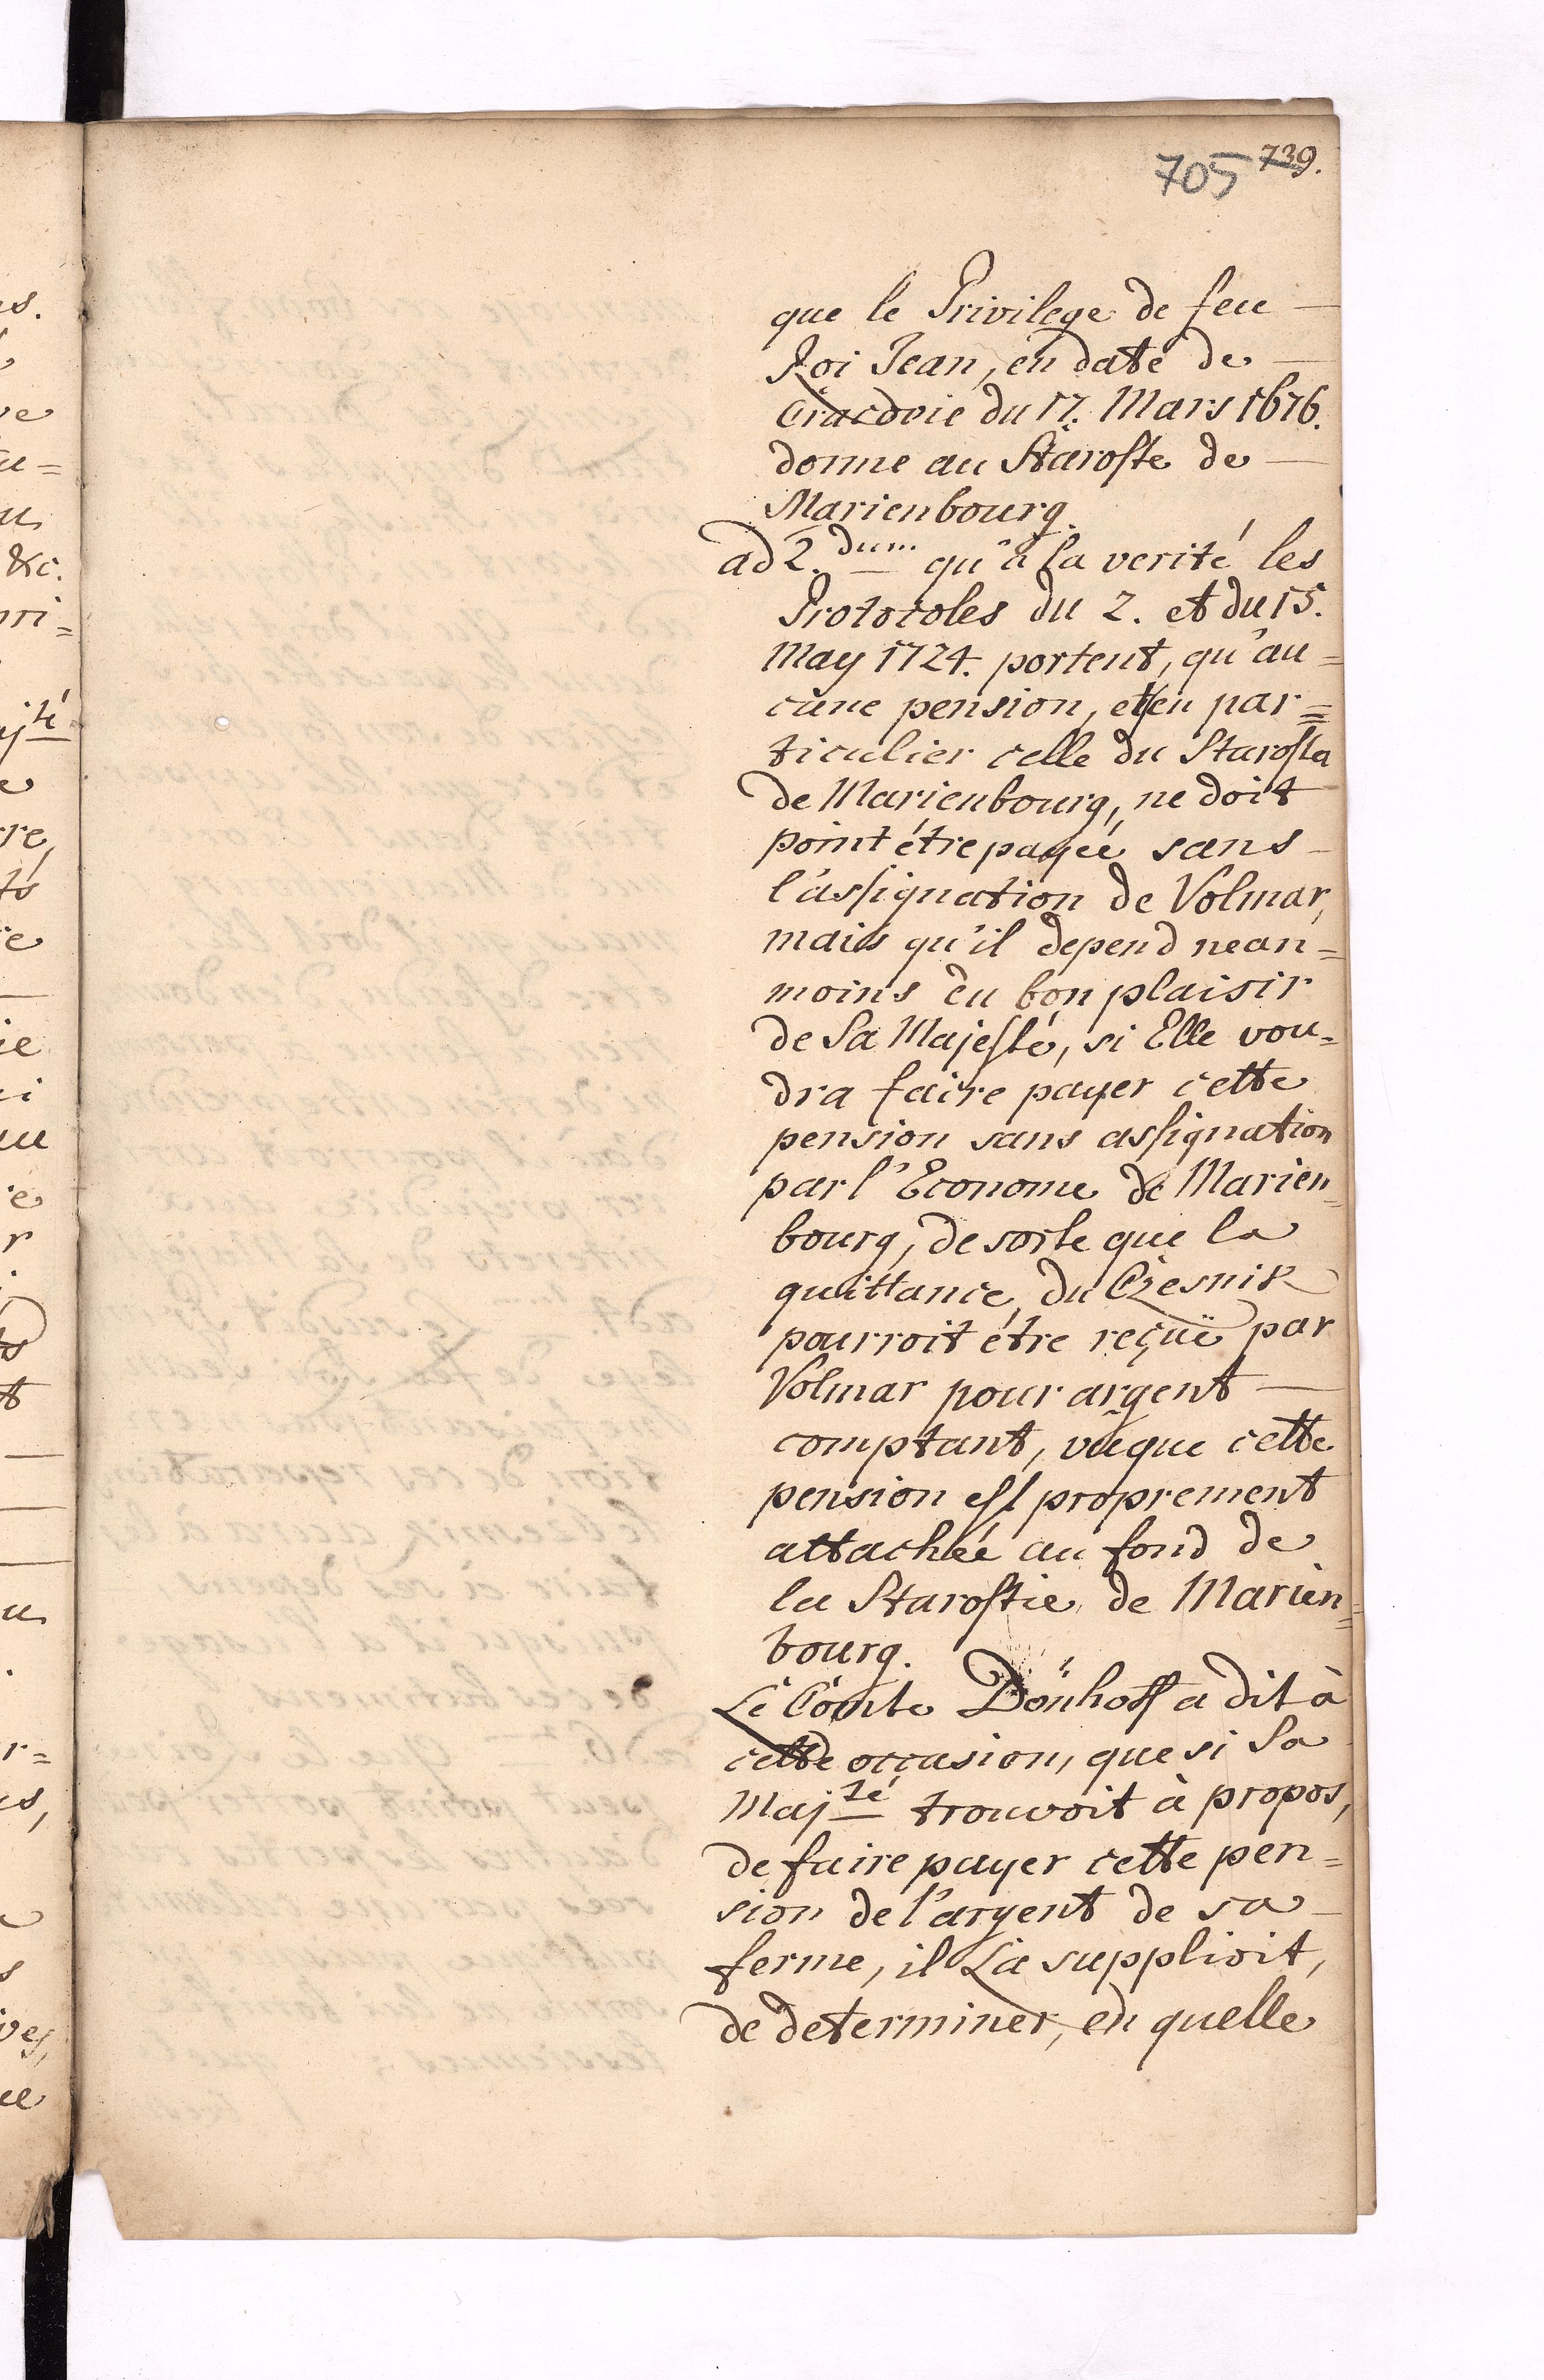 739.
705
que le Privilege de feu
Roi Jean, en date de
Cracovie du 17. Mars 1676.
donne au Staroste de
Marienbourg.
ad 2.dum qu'à la verité les
Protocoles du 2. et du 15.
May 1724. portent, qu'au=
cune pension, et en par=
ticulier celle du Starosta
de Marienbourg, ne doit
point étre payée sans
l'assignation de Volmar,
mais qu'il depend nean=
moins du bon plaisir
de Sa Majesté, si Elle vou=
dra faire payer cette
pension sans assignation
par l'Econome de Marien=
bourg, de sorte que la
quittance du Czesnik
pourroit étre reçuë par
Volmar pour argent
comptant, vûque cette
pension est proprement
attachée au fond de
la Starostie de Marien=
bourg.
Le Comte Dönhoff a dit à
cette occasion, que si Sa
Maj.té trouvoit à propos,
de faire payer cette pen=
sion de l'argent de sa
ferme, il La supplioit,
de determiner, en quelle